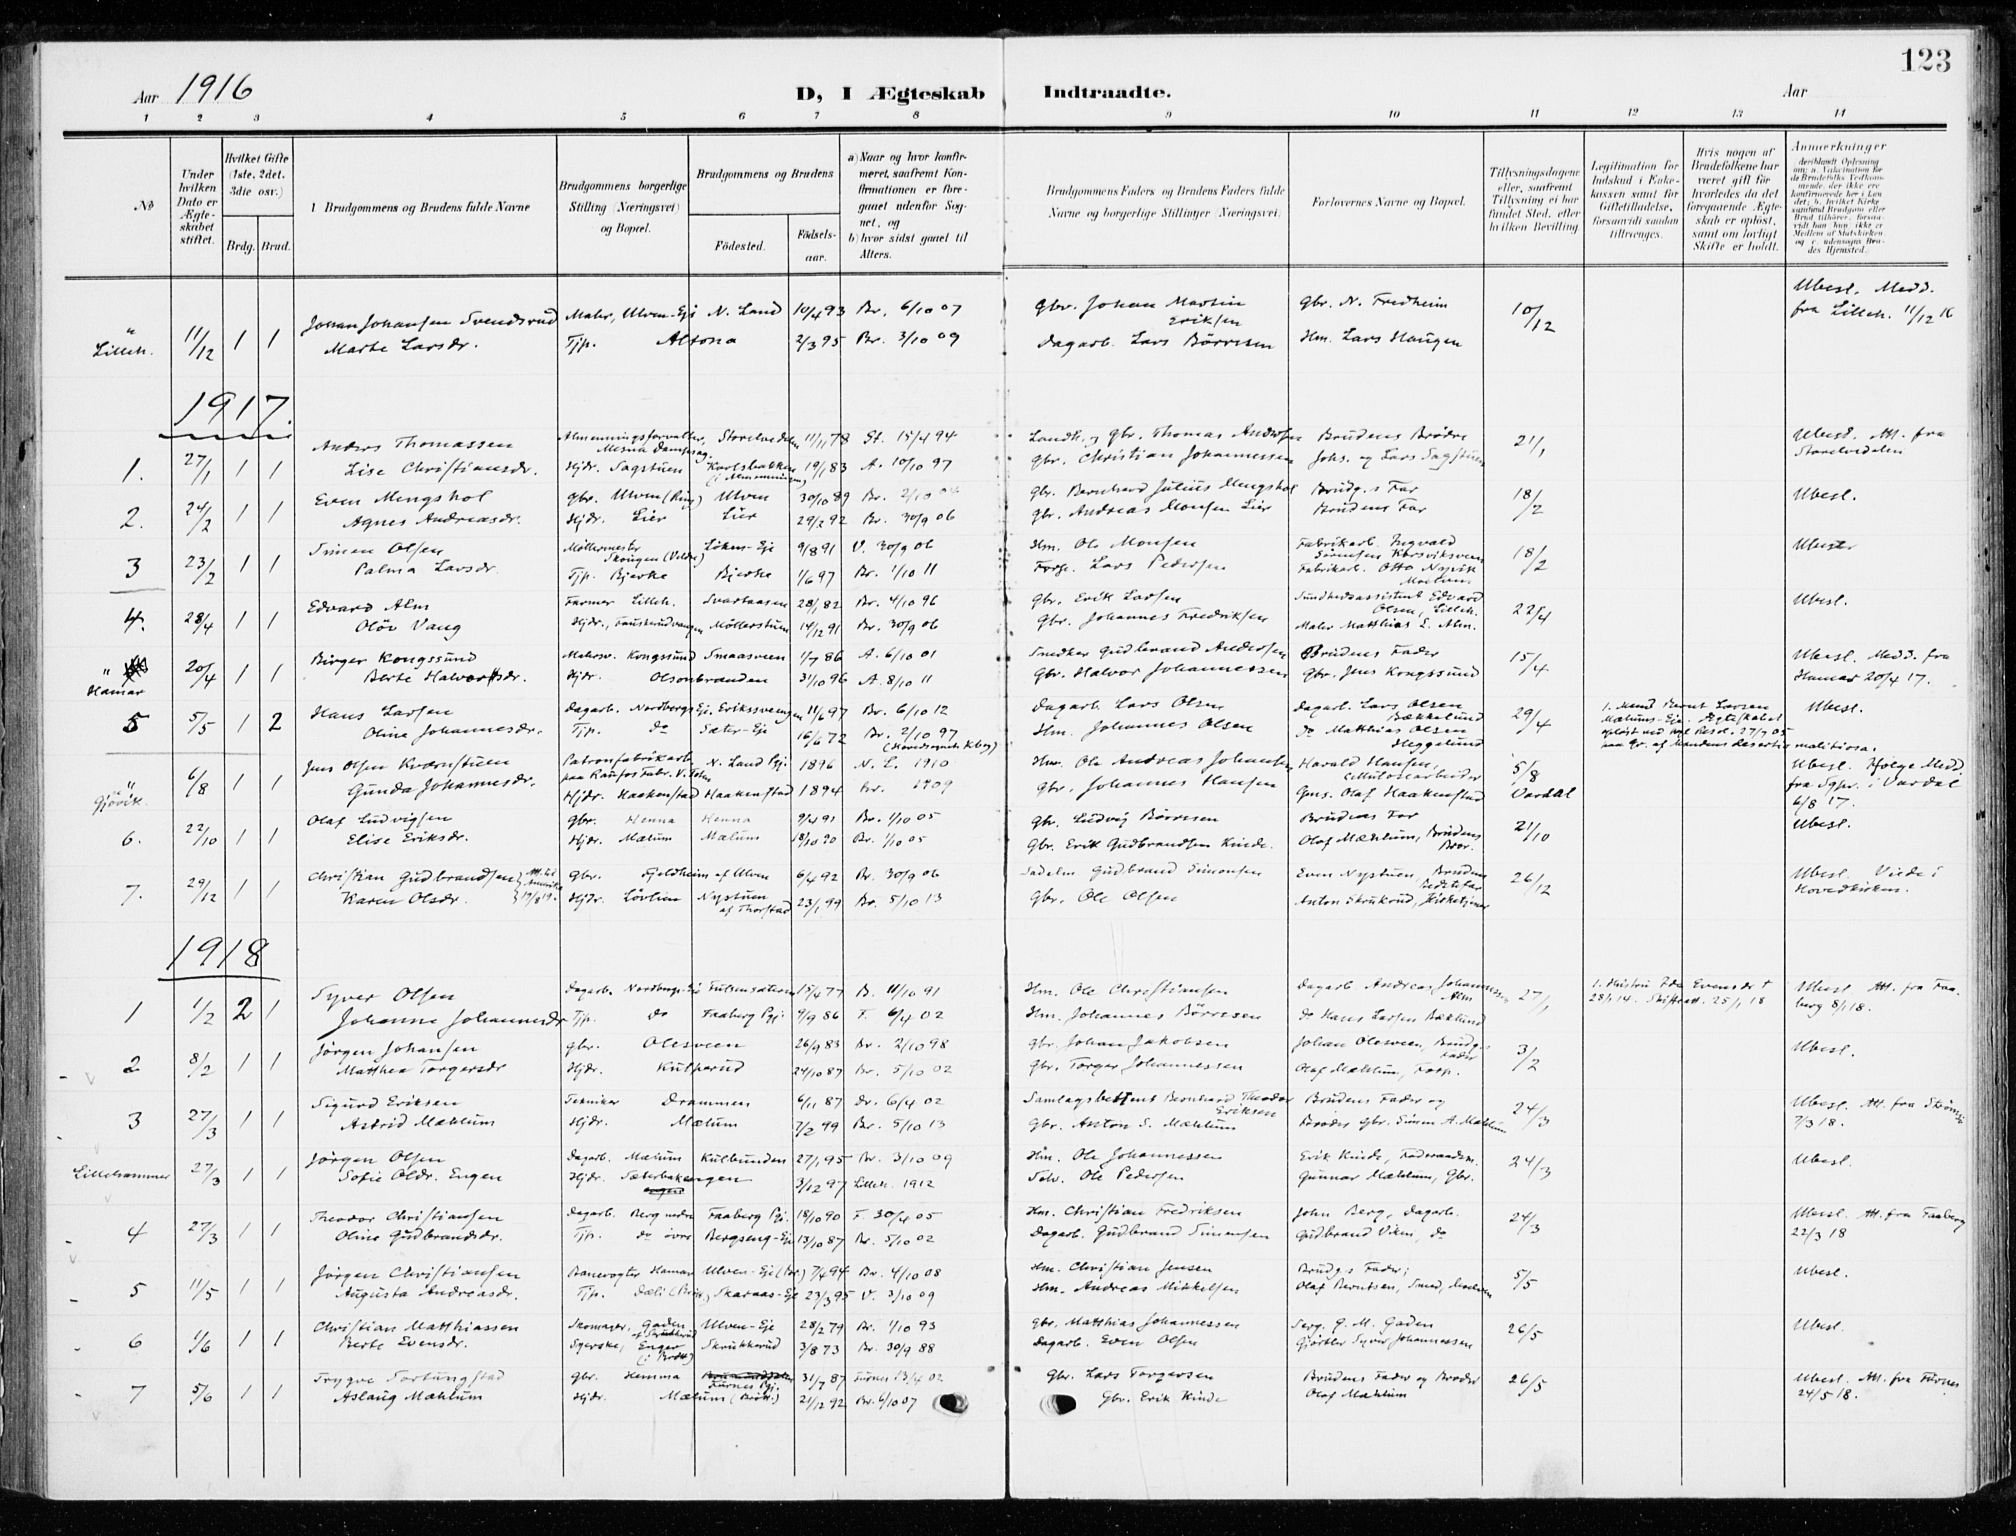 123
Aar 1916 D, I Ægteskab Indtraadte. Aar
1 2 3 4 5 6 7 8 9 10 11 12 13 14
No
Under hvilken Dato er Ægteskabet stiftet.
Hvilket Gifte (1ste, 2det, 3die osv.)
Brdg. Brud.
1 Brudgommens og Brudens fulde Navne
Brudgommens borgerlige Stilling (Næringsvei) og Bopæl.
Brudgommens og Brudens
Fødested.
Fødselsaar.
a) Naar og hvor konfirmeret, saafremt Konfirmationen er foregaaet udenfor Sognet, og
b) hvor sidst gaaet til Alters.
Brudgommens Faders og Brudens Faders fulde Navne og borgerlige Stillinger (Næringsvei).
Forlovernes Navne og Bopæl.
Tillysningsdagene eller, saafremt Tillysning ei har fundet Sted, efter hvilken Bevilling.
Legitimation for Indskud i Enkekassen samt for Giftetilladelse, forsaavidt saadan tiltrænges.
Hvis nogen af Brudefolkene har været gift før hvorledes da det foregaaende Ægteskab er opløst, samt om lovligt Skifte er holdt.
Anmærkninger
" Lilleh. 11/12 1 1 Johan Johansen Svendsrud Maler, Ulven-Eje N. Land 10/4 93 Br. 6/10 07 Gbr. Johan Martin Eriksen Gbr. N. Fredheim 10/12 Ubesl. Medd. fra Lilleh. 11/12 16
Marte Larsdr. Tjp. Altona 2/3 95 Br. 3/10 09 Dagarb. Lars Børresen Hm. Lars Haugen
1917.
1. 27/1 1 1 Anders Thomassen Almenningsforvalter, Mesna Dampsag. Storelvedalen 11/11 78 St. 15/4 94 Landh. og Gbr. Thomas Andersen Brudens Brødre 21/1 Ubesl. Att. fra Storelvedalen
Lise Christiansdr. Hjdr. Sagstuen Karlsbakken (i Almenningen) 19/1 83 A. 10/10 97 Gbr. Christian Johannessen Johs. og Lars Sagstuen
2. 24/2 1 1 Even Mengshol Gbr. Ulven (Ring) Ulven 30/10 89 Br. 2/10 04 Gbr. Bernhard Julius Mengshol Brudg.s Far 18/2 Ubesl.
Agnes Andreasdr. Hjdr. Lier Lier 29/2 92 Br. 30/9 06 Gbr. Andreas Monsen Lier Brudens Far
3 23/2 1 1 Simen Olsen Møllermester Skougen (Veldre) Løken-Eje 9/8 91 V. 30/9 06 Hm. Ole Monsen Fabrikarb. Ingvald Simensen Korsviksveen 18/2
Palma Larsdr. Tjp. Bjerke Bjerke 1/6 97 Br. 1/10 11 Lars Pedersen Fabrikarb. Otto Moelven
4. 28/4 1 1 Edvard Alm Farmer Lilleh. Svartaasen 28/1 82 Br. 4/10 96 Gbr. Erik Larsen Sundhedsassistent Edvard Olsen, Lilleh. 22/4 Ubesl.
Oløv Vang Hjdr., Møllerstuen 14/12 91 Br. 30/9 06 Gbr. Johannes Fredriksen Maler Matthias L. Alm.
" Hamar 20/4 1 1 Birger Kongssund Malersv. Kongssund Smaasveen 1/7 86 A. 6/10 01 Snedker Gudbrand Andersen Brudens Fader 15/4 Ubesl. Medd. fra Hamar 20/4 17.
Berte Halvorsdr. Hjdr. Olsonbranden 31/10 96 A. 8/10 11 Gbr. Halvor Johannessen Gbr. Jens Kongssund
5 5/5 1 2 Hans Larsen Dagarb. Nordbergs Eje. Eriksvengen 11/6 97 Br. 6/10 12 Dagarb. Lars Olsen Dagarb. Lars Olsen Bækkelund 29/4 1. Mand Bernt Larsen Mælums-Eje. Ægteskabet opløst ved kgl. Resol. 27/9 05 paa Gr. af Mandens desertio malitiosa. Ubesl.
Oline Johannesdr. Tjp. Do Sæter-Eje 16/6 72 Br. 2/10 97 Hm. Johannes Olsen Do Matthias Olsen Heggelund
" Gjøvik. 6/8 1 1 Jens Olsen Kværnstuen Patronfabrikarb. paa Raufos Fabr. V. Toten N. Land Pgj. 1896 N. L. 1910 Hm. Ole Andreas Johansen Harald Hansen, Celluloseearbeider 5/8 Vardal Ubesl. Ifølge Medd. fra Sgpr. i Vardal 6/8 17.
Gunda Johannesdr. Hjdr. Haakenstad Haakenstad 1894 Br. 1909 Gbr. Johannes Hansen Gms. Olaf Haakenstad
6. 22/10 1 1 Olaf Ludvigsen Gbr. Henna Henna 9/4 91 Br. 1/10 05 Gbr. Ludvig Børresen Brudens Far 21/10 Ubesl.
Elise Eriksdr. Hjdr. Mælum Mælum 18/10 20 Br. 1/10 05 Gbr. Erik Gudbrandsen Kinde. Olaf Mæhlum, Brudens Bror.
7. 29/12 1 1 Christian Gudbrandsen Att. til Amerika 19/8 19. Gbr. Fjeldheim af Ulven 6/4 92 Br. 30/9 06 Sadelm. Gudbrand Simonsen Even Nystuen, Brudens Bedstefar 26/12 Ubesl. Viede i Hovedkirken.
Karen Olsdr. Hjdr. Løvlien Nystuen af Thorstad 23/1 99 Br. 5/10 13 Gbr. Ole Olsen Anton Skrukrud, Kirketjener
1918
1 1/2 2 1 Syver Olsen Dagarb. Nordbergs-Eje 15/4 77 B. 11/10 91 Hm. Ole Christiansen Dagarb. Andreas Johannessen Alm 27/1 1. Hustru Evensdr † 28/1 14. Skifteatt. 25/1 18 Ubesl. Att. fra Faaberg 8/1 18.
Johanne Johannesdr Tjp. Do Faaberg Pgj. 9/9 86 F. 6/4 02 Hm. Johannes Børresen Do Hans Larsen Bæklund
2 8/2 1 1 Jørgen Johansen Gbr. Olesveen 26/9 83 Br. 2/10 98 Gbr. Johan Jakobsen Johan Olesveen, Brudg. Fader 3/2 Ubesl.
Matthea Torgersdr Hjdr. Kutperud 24/10 87 Br. 5/10 02 Gbr. Torger Johannessen Olaf Mæhlum, Forp.
3 27/3 1 1 Sigurd Eriksen Tekniker Drammen 6/11 87 Dr. 6/4 02 Samlagsbetjent Bernhard Theodor Eriksen Brudens Fader og 24/3 Ubesl. Att. fra 7/3 18.
Astrid Mæhlum Hjdr. Mælum 7/2 99 Br. 5/10 13 Gbr. Anton S. Mæhlum Broder Gbr. Simen A. Mæhlum
Lillehammer 27/3 1 1 Jørgen Olsen Dagarb. Mælum Kulbunden 27/1 95 Br. 3/10 09 Hm. Ole Johannessen Erik Kinde, 24/3 Ubesl.
Sofie Olsdr. Engen Hjdr. Sæterbakengen 3/12 97 Lilleh. 1912 Selv. Ole Pedersen Gunnar Mæhlum, Gbr.
4 27/3 1 1 Theodor Christiansen Dagarb. Berg nedre Faaberg Pgj. 18/10 90 F. 30/4 05 Hm. Christian Fredriksen John Berg, Dagarb. 24/3 Ubesl. Att. fra Faaberg 22/3 18
Oline Gudbrandsdr. Tjp. do øvre Bergseng-Eje 13/10 87 Br. 5/10 02 Dagarb. Gudbrand Simensen Gudbrand Viken, do
5 11/5 1 1 Jørgen Christiansen Banevogter Hamar Ulven-Eje (Br.) 7/4 94 Br. 4/10 08 Hm. Christian Jensen Brudg.s Fader; 5/5 Ubesl.
Augusta Andreasdr. Tjp. Dæli (Brøtt.) Skaraas-Eje 23/3 95 V. 3/10 09 Hm. Andreas Mikkelsen Olaf Berntsen, Smed, Moelven
6 1/6 1 1 Christian Matthiassen Skomager, Gaden af Skrukkerud Ulven-Eje 28/2 79 Br. 1/10 93 Gbr. Matthias Johannessen Serg. G. M. Gaden 26/5 Ubesl.
Berte Evensdr. Syerske, Enger (i Brøtt) Skrukkerud 3/8 73 Br. 30/9 88 Dagarb. Even Olsen Gjørtler Syver Johannessen
7 5/6 1 1 Trygve Tortungstad Gbr. Hemma Furnes Pgj. 31/7 87 Furnes 13/4 02 Gbr. Lars Torgersen Brudens Fader og Broder 26/5 Ubesl. Att. fra Furnes 24/5 18.
Aslaug Mæhlum Hjdr. Mælum (Brøtt.) 21/12 92 Br. 6/10 07 Gbr. Erik Kinde Olaf Mæhlum